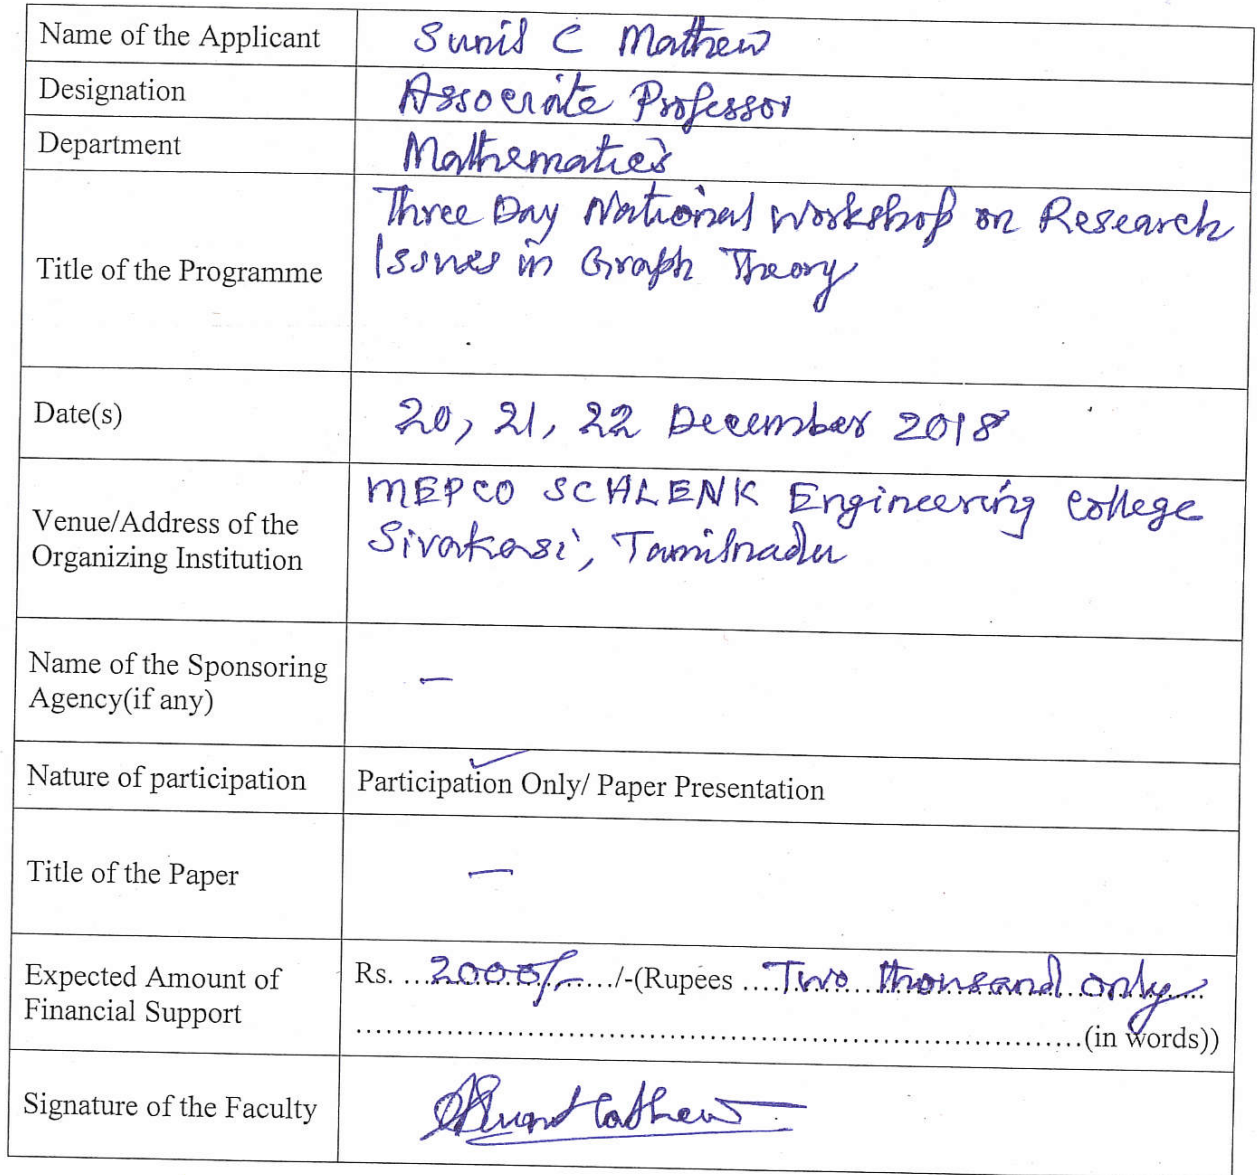 Name of the Applicant Sunil C Mathew
Designation Associate Professor
Department Mathematics
Title of the Programme Three Day National Workshop on Research
Issues in Graph Theory
Date(s) 20, 21, 22 December 2018
Venue/Address of the
Organizing Institution
MEPCO SCHLENK Engineering College
Sivakasi, Tamilnadu
Name of the Sponsoring
Agency(if any)
—
Nature of participation Participation Only/ Paper Presentation
Title of the Paper —
Expected Amount of
Financial Support
Rs. ...2000/-....../-(Rupees ....Two thousand only....
....................................................................(in words))
Signature of the Faculty